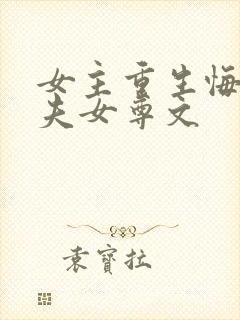 女主重生悔
夫女尊文
袁寶拉